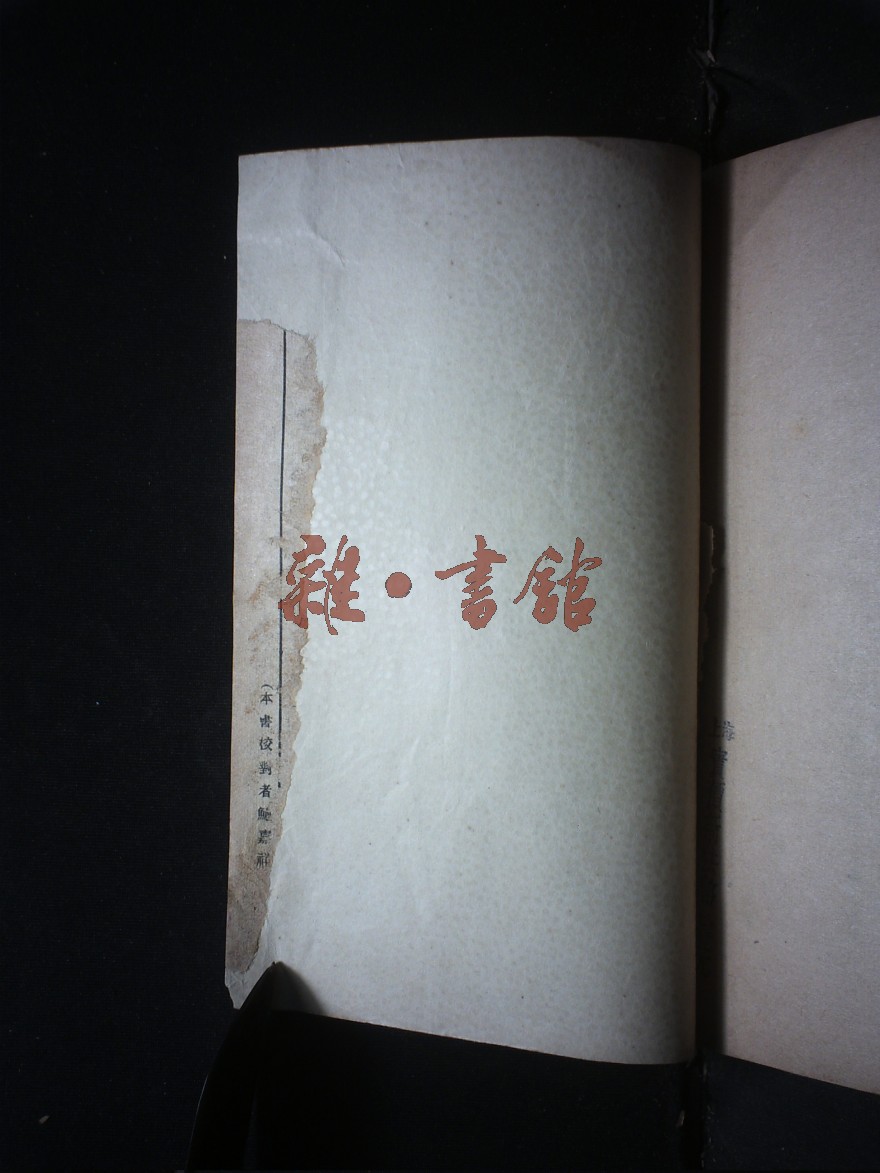 雜・書館
(本書校對者鮑嘉祥